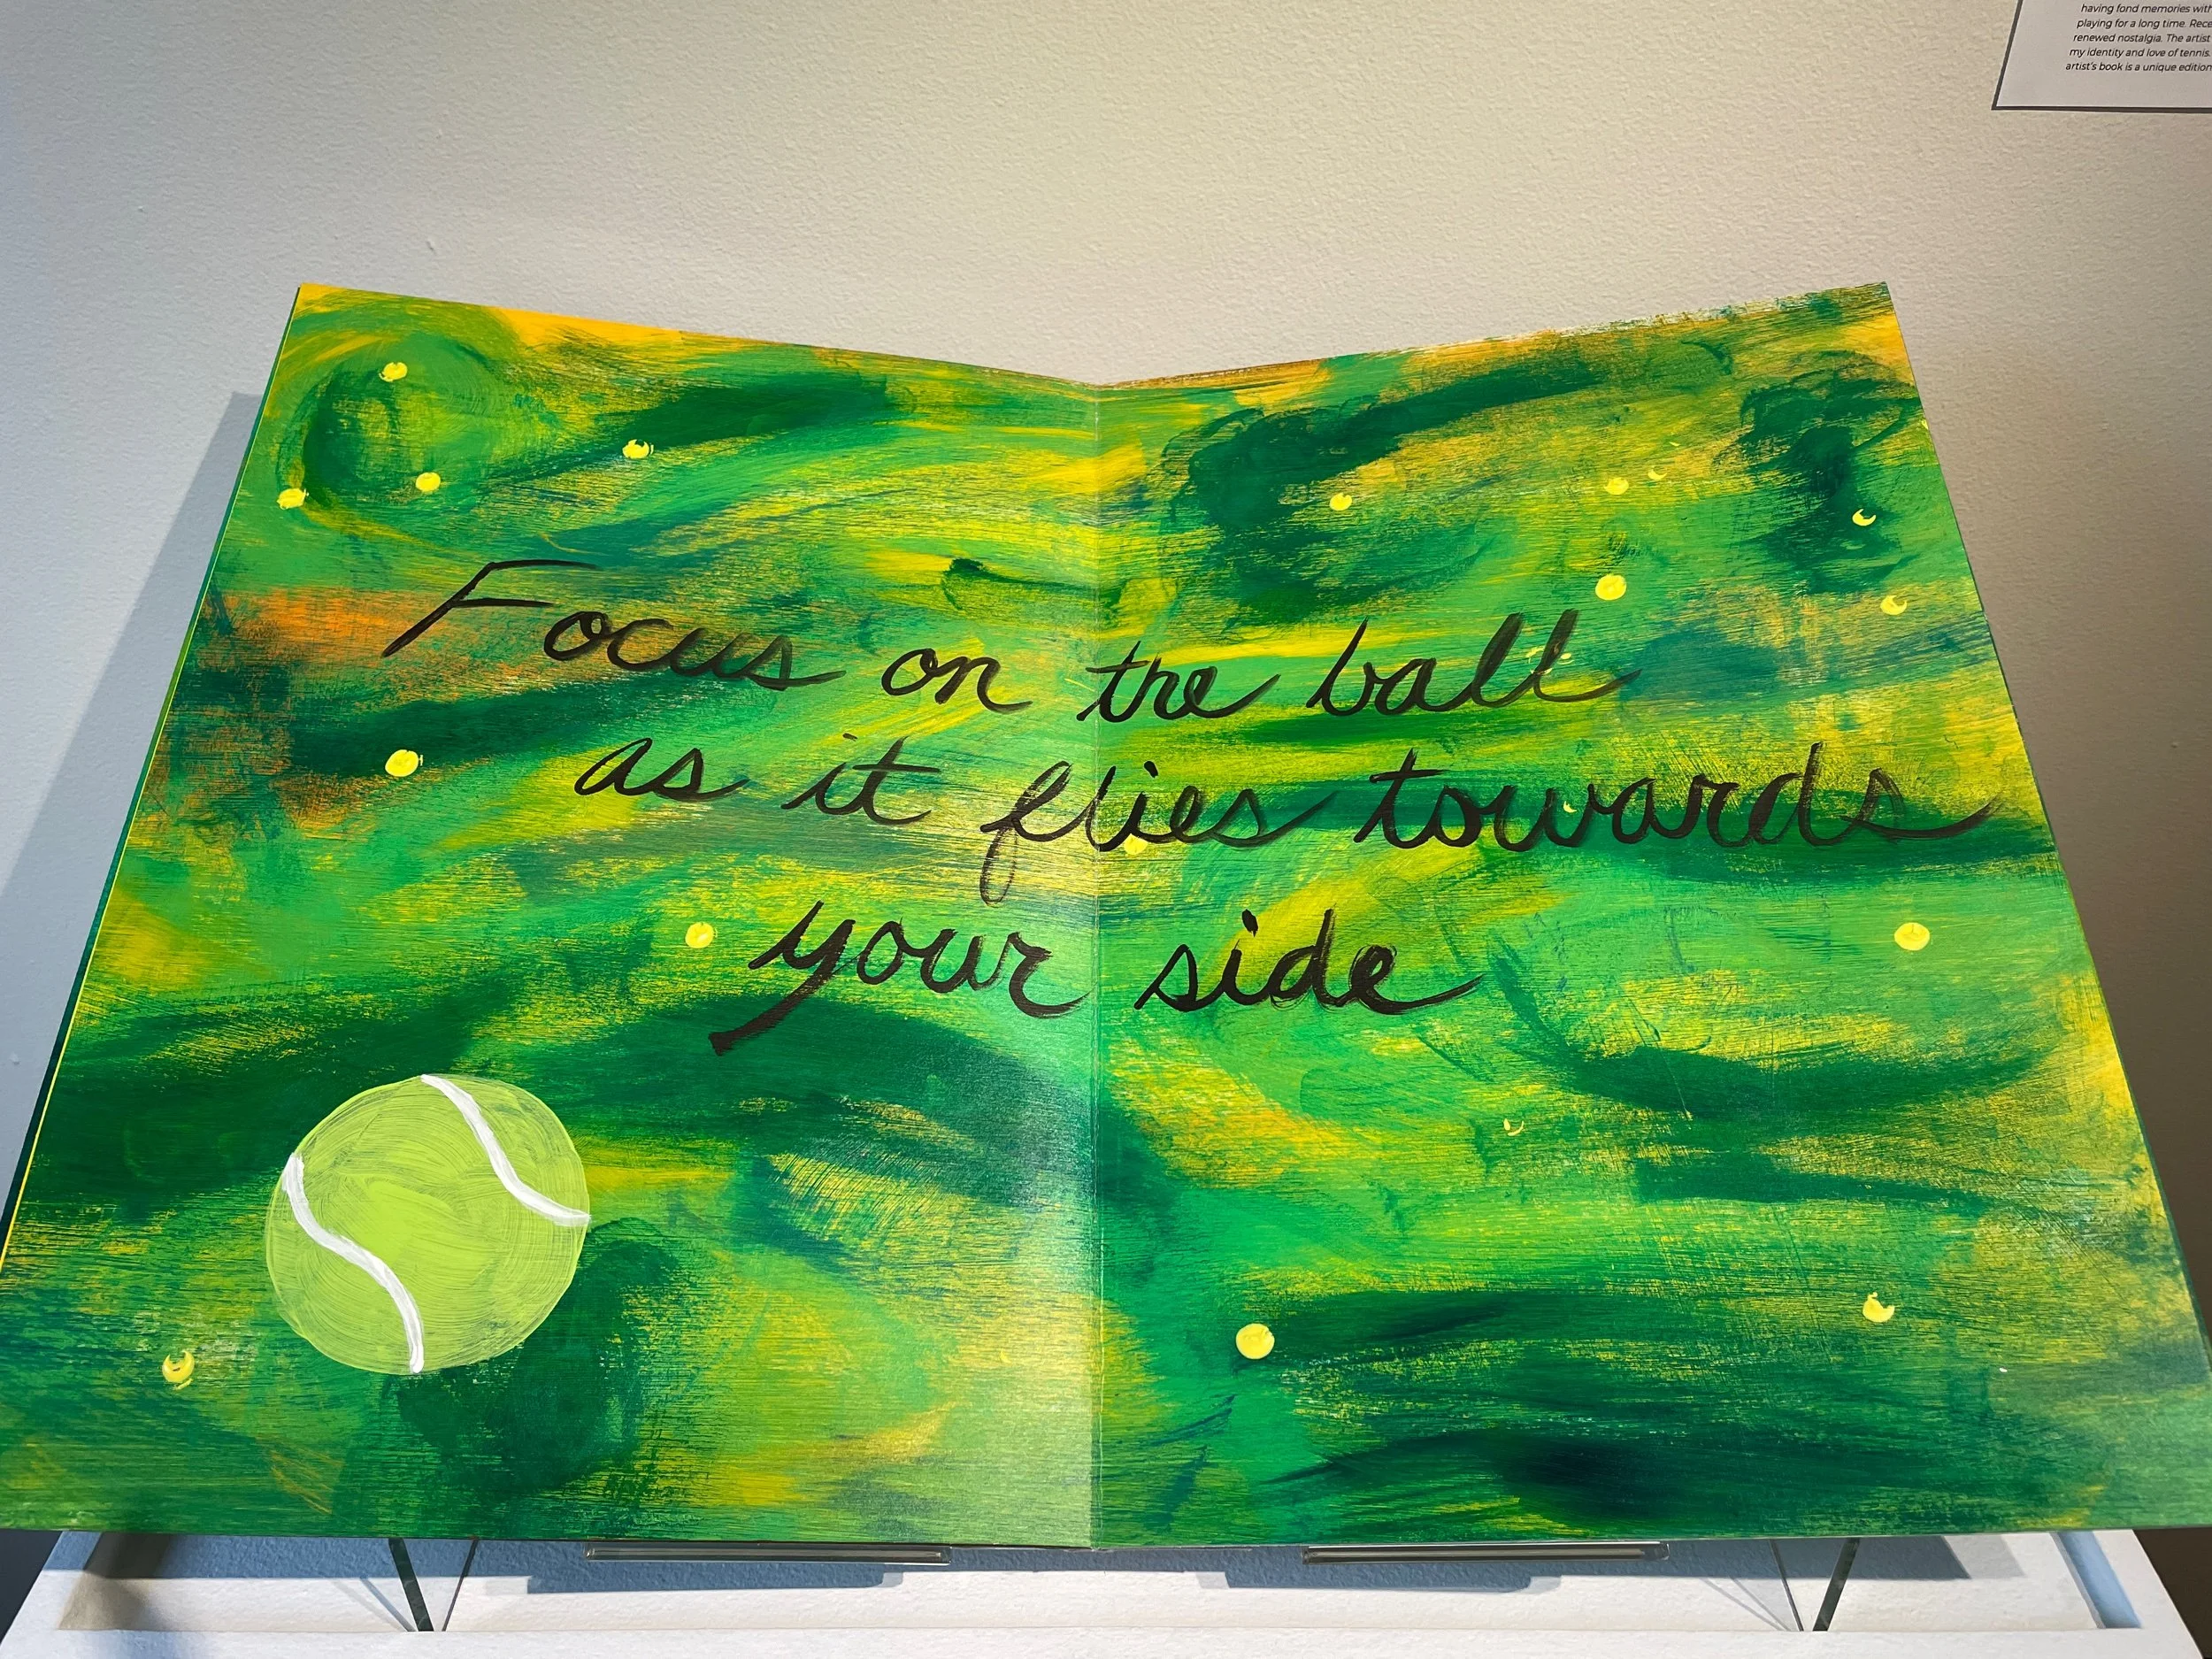 having fond memories with
playing for a long time. Rece
renewed nostalgia. The artist
my identity and love of tennis.
artist's book is a unique edition
Focus on the ball
as it flies towards
your side